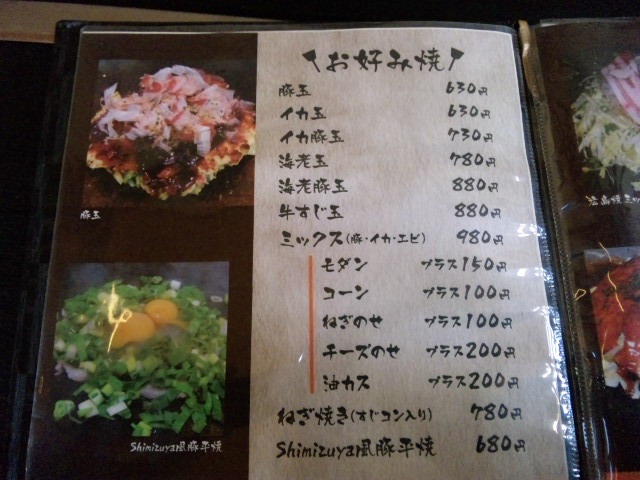 お好み焼
豚玉 630円
イカ玉 630円
イカ豚玉 730円
海老玉 780円
海老豚玉 880円
牛すじ玉 880円
ミックス(豚・イカ・エビ) 980円
モダン プラス150円
コーン プラス100円
ねぎのせ プラス100円
チーズのせ プラス200円
油カス プラス200円
ねぎ焼き(すじコン入り) 780円
Shimizuya風豚平焼 680円
豚玉
Shimizuya風豚平焼